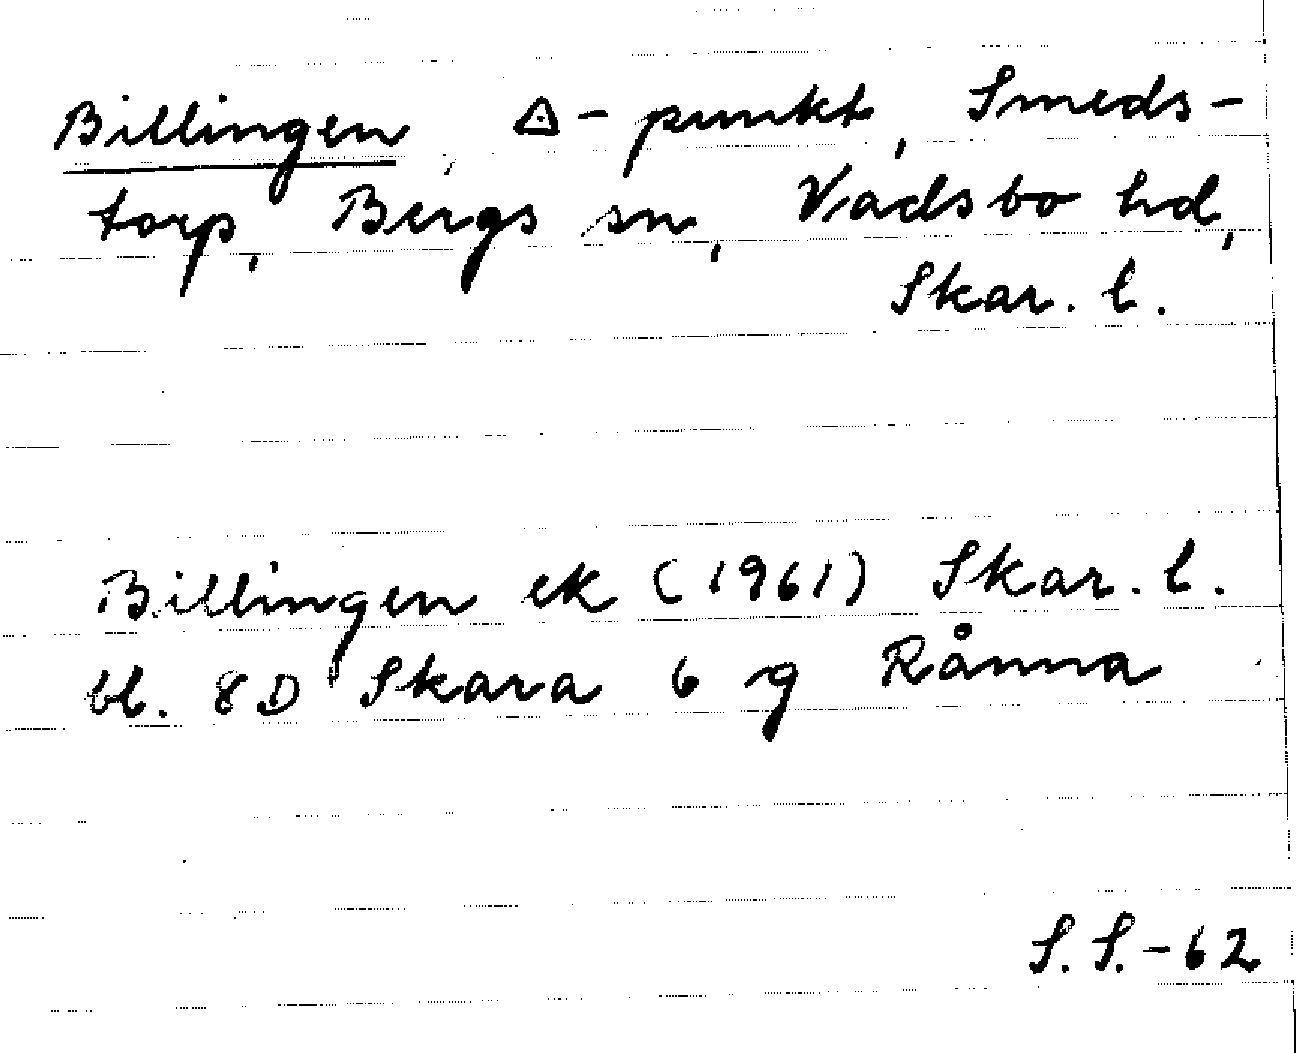 Billingen, △-punkt, Smeds-
torp, Bergs sn, Vadsbo hd,
Skar. l.
Billingen ek (1961) Skar. l.
bl. 8D Skara 6 g Rånna
S.S.-62